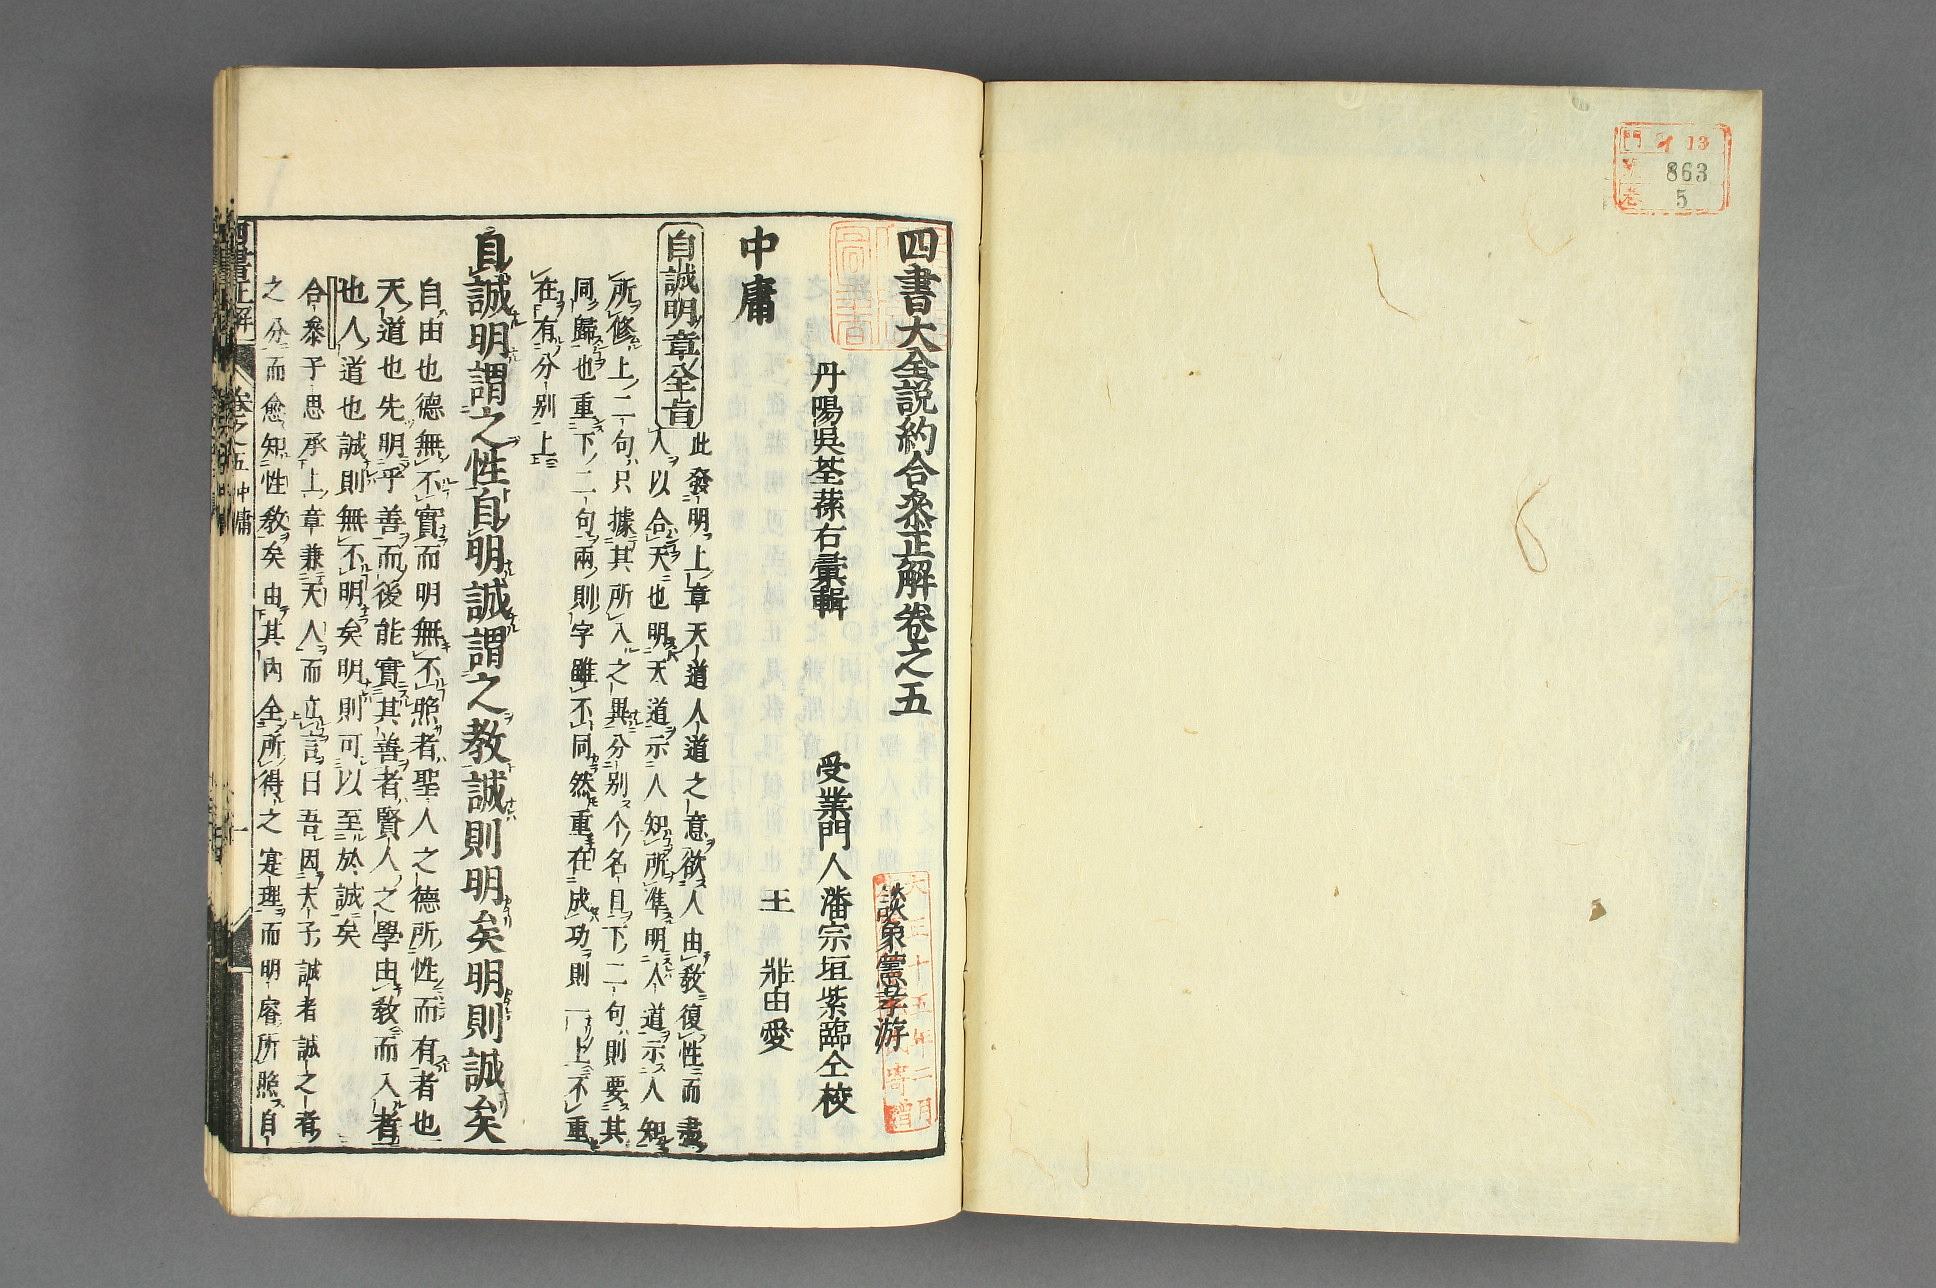 門 13
863
卷 5
四書大全説約合叅正解卷之五
丹陽吳荃蓀右彙輯
談象憲孝游
受業門人潘宗垣紫臨仝校
王 由愛
大正十五年二月
寄贈
中庸
自誠明章全旨
此發明上章天道人道之意欲人由敎復性而盡
人以合天也明天道示人知所準明人道示人知
所修上二句只據其所入之異分别个名目下二句則要其
同歸也重下二句兩則字雖不同然重在成功則一上不重
在有分别上
自誠明謂之性自明誠謂之教誠則明矣明則誠矣
自由也德無不實而明無不照者聖人之德所性而有者也
天道也先明乎善而後能實其善者賢人之學由敎而入者
也人道也誠則無不明矣明則可以至於誠矣
合叅子思承上章兼天人而立言曰吾因夫子誠者誠之者
之分而愈知性敎矣由其内全所得之寔理而明睿所照自
四書正解 卷之五 中庸 一